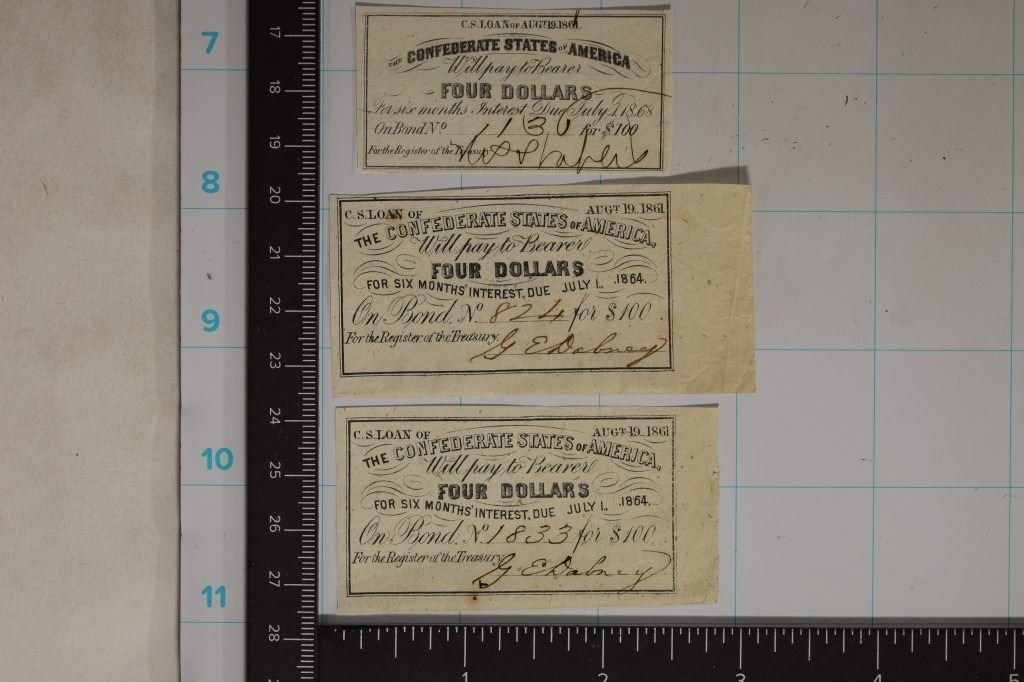 C.S. LOAN OF AUGT 19. 1861.
THE CONFEDERATE STATES OF AMERICA
Will pay to Bearer
FOUR DOLLARS
For six months Interest Due July 1. 1868
On Bond No 130 for $100
For the Register of the Treasury
C.S. LOAN OF AUGT 19. 1861
THE CONFEDERATE STATES OF AMERICA,
Will pay to Bearer
FOUR DOLLARS
FOR SIX MONTHS' INTEREST, DUE JULY 1. 1864.
On Bond, No. 824 for $100.
For the Register of the Treasury.
G E Dabney
C.S. LOAN OF AUGT 19. 1861
THE CONFEDERATE STATES OF AMERICA,
Will pay to Bearer
FOUR DOLLARS
FOR SIX MONTHS' INTEREST, DUE JULY 1. 1864.
On Bond, No. 1833 for $100.
For the Register of the Treasury.
G E Dabney
7
8
9
10
11
17
18
19
20
21
22
23
24
25
26
27
28
1 2 3 4 5